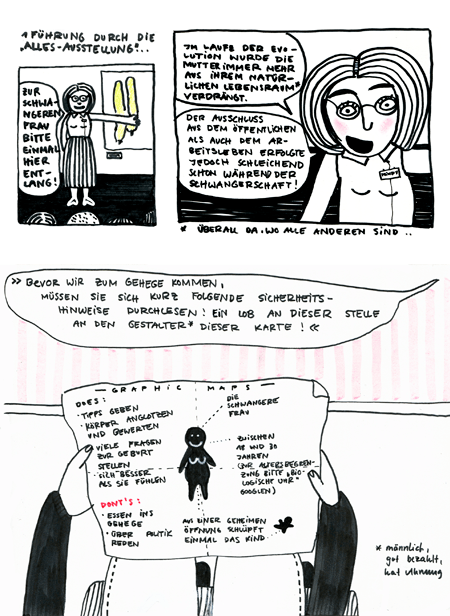 1 FÜHRUNG DURCH DIE
„ALLES-AUSSTELLUNG"...
ZUR
SCHWA-
NGEREN
FRAU
BITTE
EINMAL
HIER
ENT-
LANG!
IM LAUFE DER EVO-
LUTION WURDE DIE
MUTTER IMMER MEHR
AUS IHREM NATÜR-
LICHEN LEBENSRAUM*
VERDRÄNGT.
DER AUSSCHLUSS
AUS DEM ÖFFENTLICHEN
ALS AUCH DEM AR-
BEITSLEBEN ERFOLGTE
JEDOCH SCHLEICHEND
SCHON WÄHREND DER
SCHWANGERSCHAFT!
* ÜBERALL DA, WO ALLE ANDEREN SIND ..
» BEVOR WIR ZUM GEHEGE KOMMEN,
MÜSSEN SIE SICH KURZ FOLGENDE SICHERHEITS-
HINWEISE DURCHLESEN! EIN LOB AN DIESER STELLE
AN DEN GESTALTER* DIESER KARTE! «
GRAPHIC MAPS
DOES:
· TIPPS GEBEN
· KÖRPER ANGLOTZEN
UND BEWERTEN
· VIELE FRAGEN
ZUR GEBURT
STELLEN
· SICH BESSER
ALS SIE FÜHLEN
DONT'S:
· ESSEN INS
GEHEGE
· ÜBER POLITIK
REDEN
DIE
SCHWANGERE
FRAU
ZWISCHEN
18 UND 30
JAHREN
(ZUR ALTERSBEGREN-
ZUNG BITTE „BIO-
LOGISCHE UHR"
GOOGLEN)
AUS EINER GEHEIMEN
ÖFFNUNG SCHLÜPFT
EINMAL DAS KIND
* männlich,
gut bezahlt,
hat Ahnung